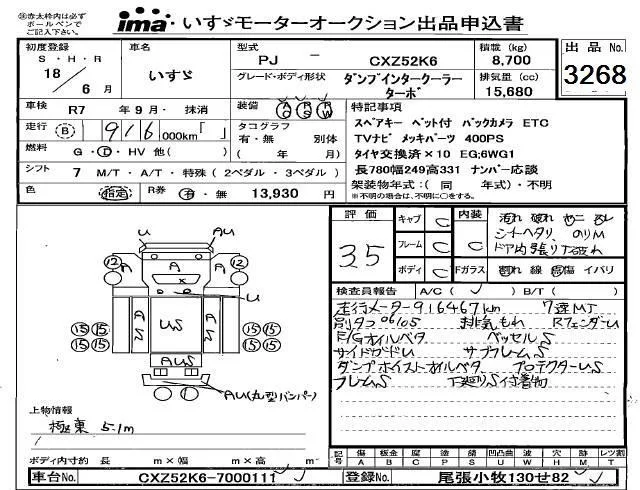 ※赤太枠内は必ず
ボールペンで
ご記入下さい。
ima いすゞモーターオークション出品申込書
初度登録 車名 型式 積載 (kg) 出品No.
S・H・R PJ － CXZ52K6 8,700 3268
18 / 6 月 いすゞ グレード・ボディ形状 ダンプインタークーラーターボ 排気量 (cc) 15,680
車検 R7 年 9 月・ 抹消 装備 AC PS PW 特記事項
走行 (B) 916 000km「 」 タコグラフ 有・無 別体 ( 年 月)
スペアキー ベット付 バックカメラ ETC
TVナビ メッキパーツ 400PS
燃料 G・D・HV 他( ) タイヤ交換済×10 EG;6WG1
シフト 7 M/T・A/T・特殊 ( 2ペダル・3ペダル ) 長780幅249高331 ナンバー応談
架装物年式:( 同 年式)・不明
色 指定 R券 有・無 13,930 円 ※不明の場合は、不明に○をする。
評価 キャブ C 内装 C 汚れ 破れ ヤニ
35 フレーム C シートヘタリ、のりM
ドア内張り下破れ
ボディ C Fガラス 割れ 線 飛傷 イバリ
検査員報告 A/C ( ✓ ) B/T ( )
走行メーター916467km 7速MJ
排気もれ RフェンダーU
F/Gオイルベタ ベッセルS
サイドガードU サブフレームS
ダンプホイストオイルベタ プロテクターUS
フレームS 下廻りS付着物
U AU
12 A A 12
U
15 15 US 15 15
15 15 15 15
AUS
AU(丸型バンパー)
上物情報
極東 5.1m
ボディ内寸約 長 m×幅 m×高 m
記号 傷 A 板金 B 腐 C 塗 P 錆 S 凹凸曲 U 波 W 穴 H 跡 M レツ割 T
車台No. CXZ52K6-7000111 登録No. 尾張小牧130せ82